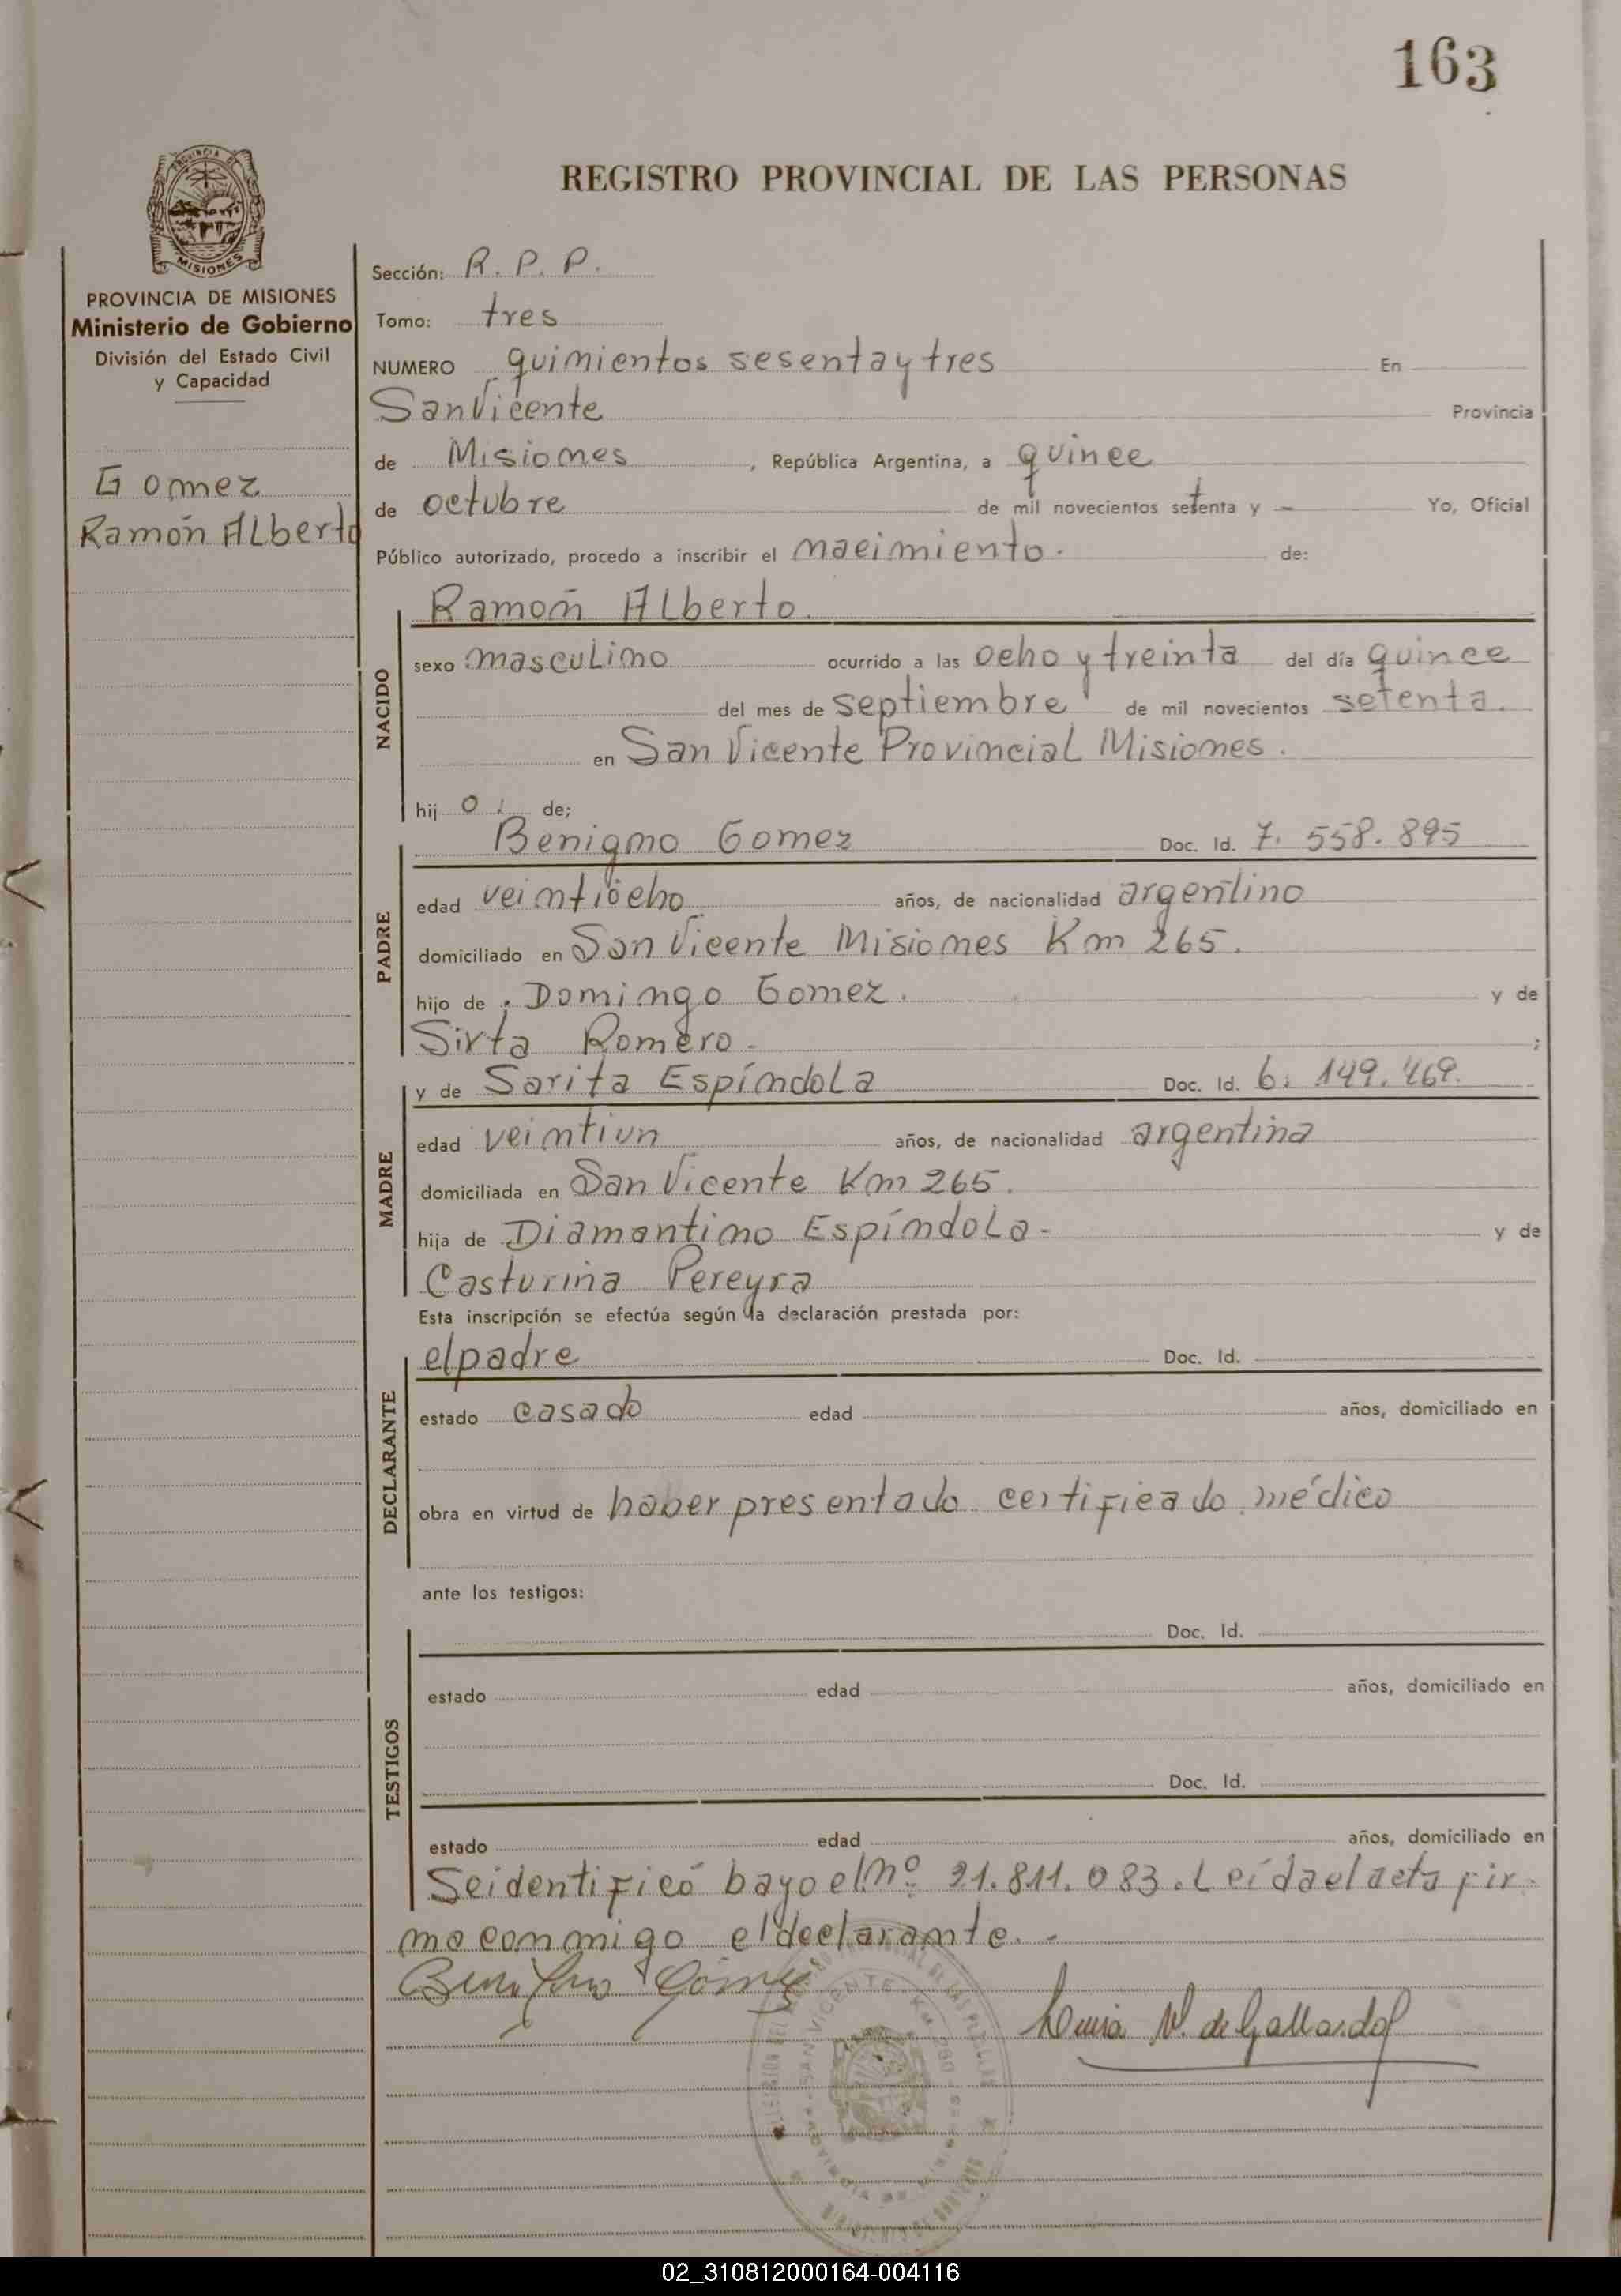 163
REGISTRO PROVINCIAL DE LAS PERSONAS
PROVINCIA DE MISIONES
Ministerio de Gobierno
División del Estado Civil
y Capacidad
Gomez
Ramón Alberto
Sección: R. P. P.
Tomo: tres
NUMERO quimientos sesenta y tres En
San Vicente Provincia
de Misiones, República Argentina, a quince
de octubre de mil novecientos setenta y - Yo, Oficial
Público autorizado, procedo a inscribir el nacimiento. de:
NACIDO
Ramón Alberto.
sexo masculino ocurrido a las ocho y treinta del día quince
del mes de septiembre de mil novecientos setenta.
en San Vicente Provincial Misiones.
hij o. de;
PADRE
Benigno Gomez Doc. Id. 7. 558. 895
edad veintiocho años, de nacionalidad argentino
domiciliado en San Vicente Misiones Km 265.
hijo de . Domingo Gomez. y de
Sixta Romero - ;
MADRE
y de Sarita Espíndola Doc. Id. 6. 149. 469.
edad veintiun años, de nacionalidad argentina
domiciliada en San Vicente Km 265.
hija de Diamantino Espíndola - y de
Casturina Pereyra
Esta inscripción se efectúa según la declaración prestada por:
DECLARANTE
el padre Doc. Id.
estado casado edad años, domiciliado en
obra en virtud de haber presentado certificado médico
ante los testigos:
TESTIGOS
Doc. Id.
estado edad años, domiciliado en
Doc. Id.
estado edad años, domiciliado en
Se identificó bayo el nº 21.811.083. Leída el acta fir-
mo conmigo el declarante. -
Gómez
Luisa V. de Gallardo
02_310812000164-004116